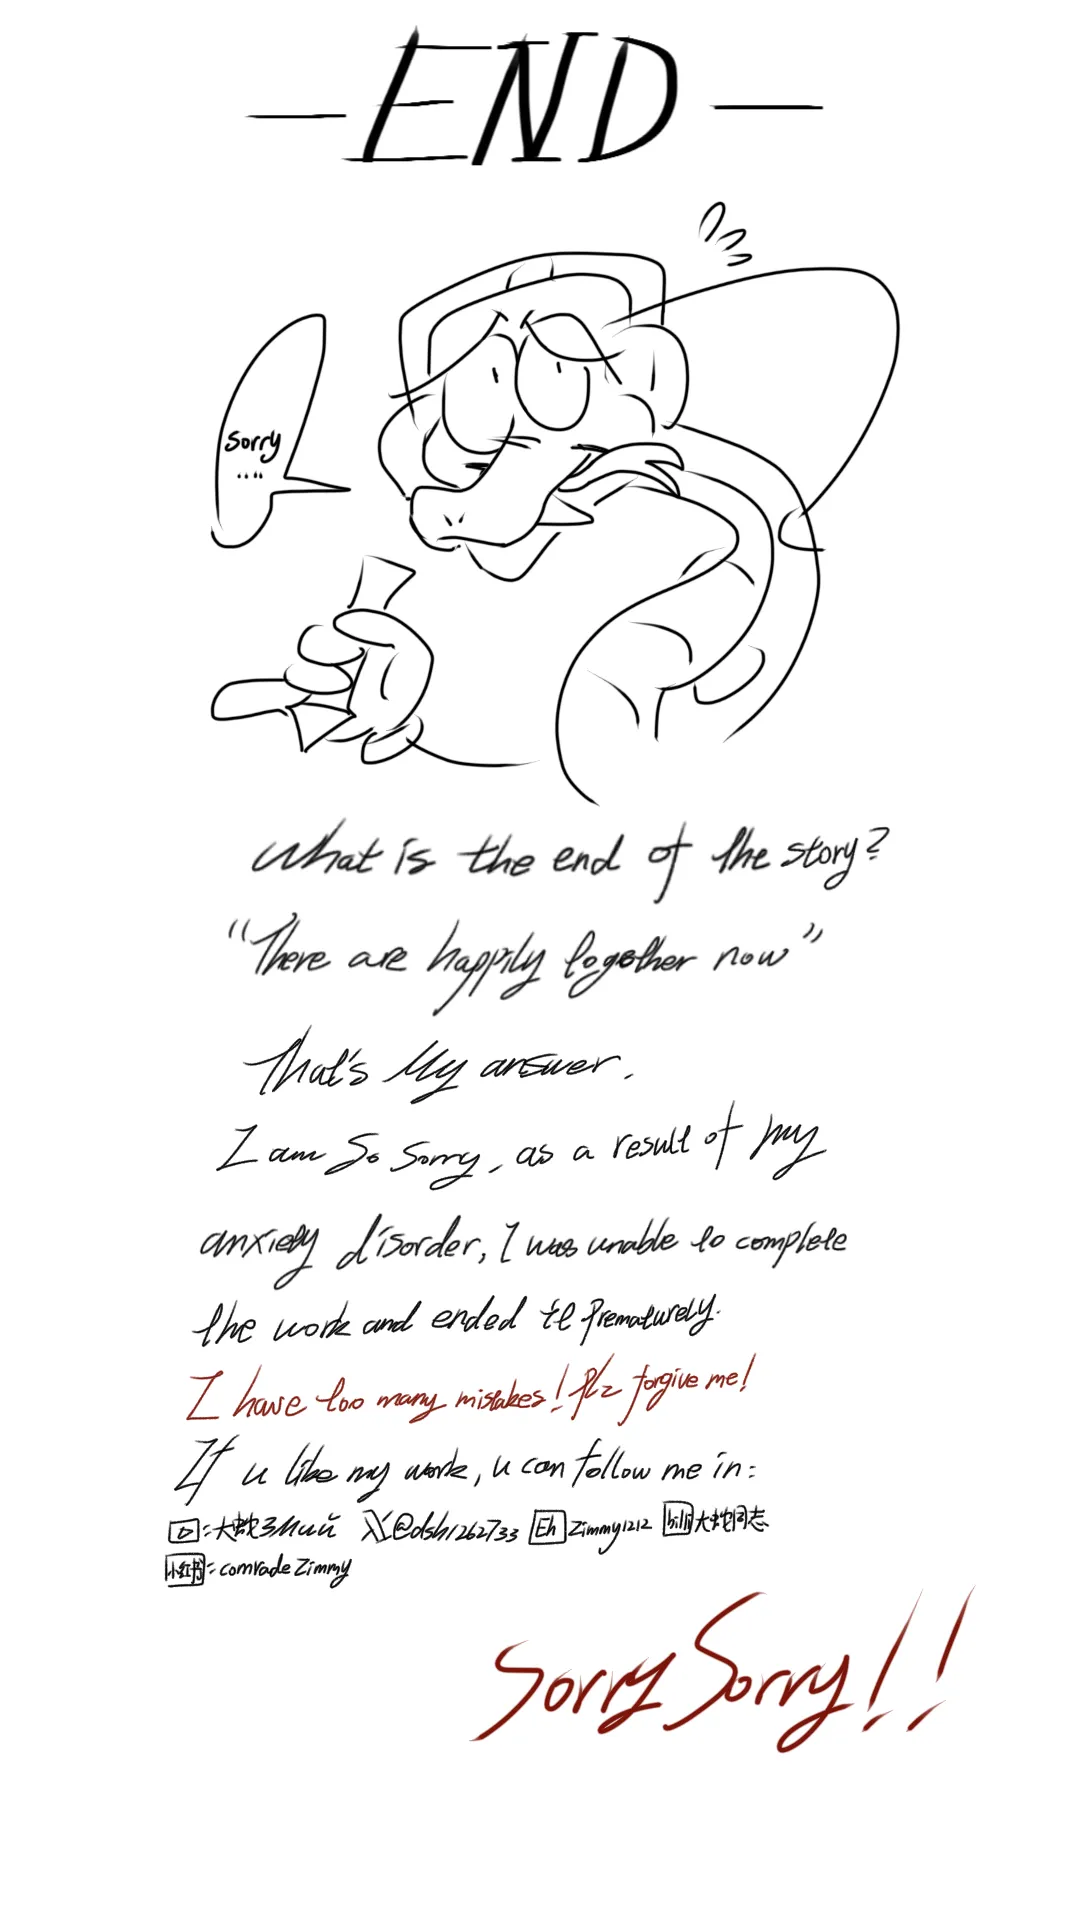 —END—
Sorry
....
What is the end of the story?
"There are happily together now"
That's My answer.
I am So Sorry, as a result of my
anxiety disorder, I was unable to complete
the work and ended it Prematurely.
I have too many mistakes! Plz forgive me!
If u like my work, u can follow me in:
:大蛇Змий X@dsh1262733 Eh Zimmy1212 bili大蛇同志
小红书:comrade Zimmy
Sorry Sorry!!